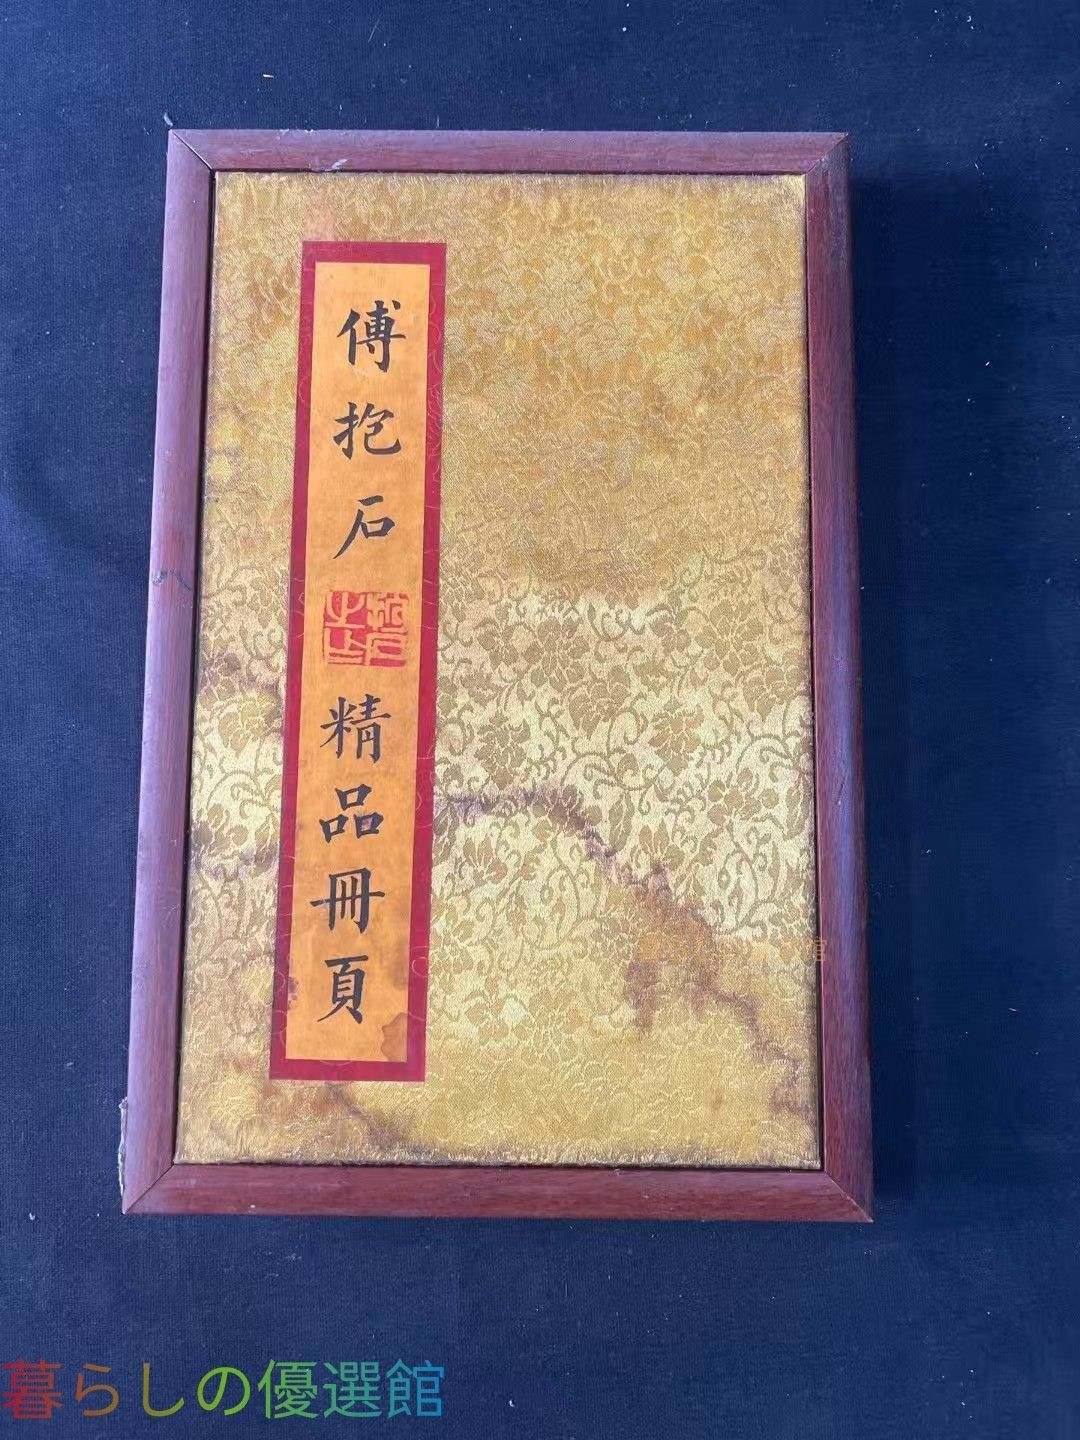 傅抱石
精品冊頁
暮らしの優選館